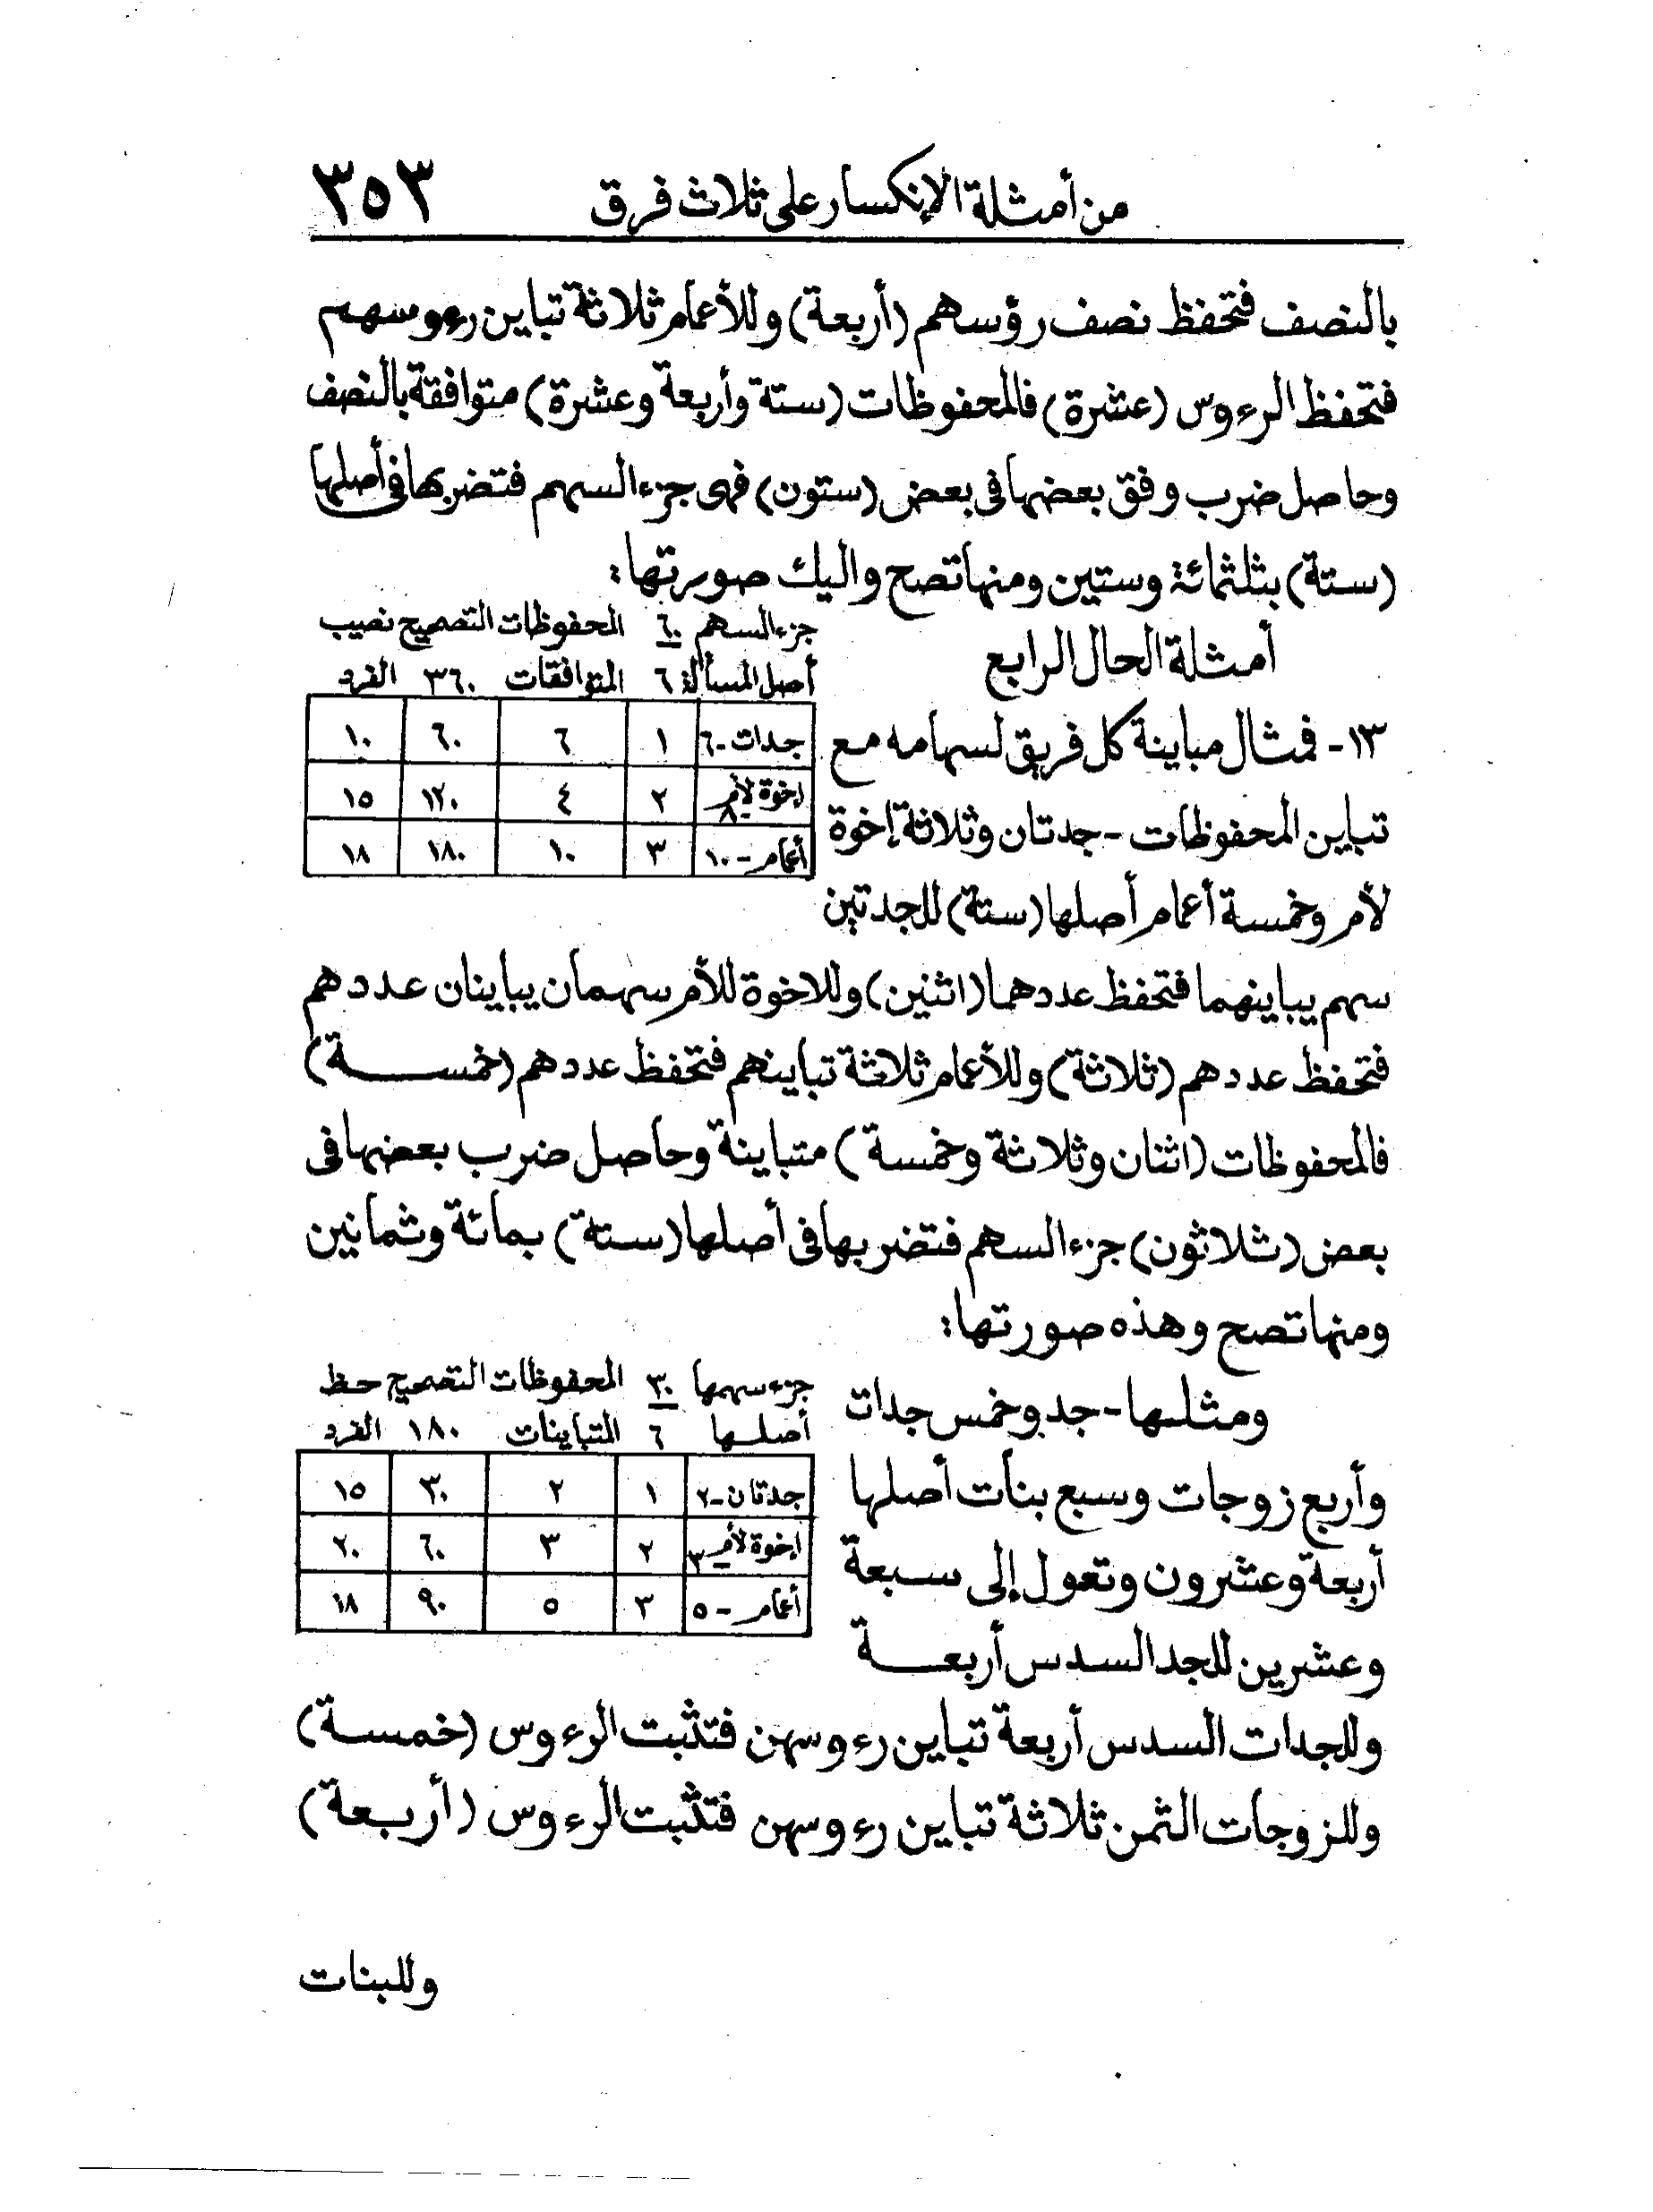 من أمثلة الإنكسار على ثلاث فرق ٣٥٣
بالنصف فتحفظ نصف رؤسهم (أربعة) وللأعمام ثلاثة تباين رءوسهم
فتحفظ الرءوس (عشرة) فالمحفوظات (ستة وأربعة وعشرة) متوافقة بالنصف
وحاصل ضرب وفق بعضها فى بعض (ستون) فهى جزء السهم فتضربها فى أصلها
(ستة) بثلثمائة وستين ومنها تصح واليك صورتها:
أمثلة الحال الرابع
جزء السهم ٦٠ المحفوظات التصحيح نصيب
أصل المسألة ٦ المتوافقات ٣٦٠ الفرد
جدات-٦ ١ ٦ ٦٠ ١٠
إخوة لأم-٨ ٢ ٤ ١٢٠ ١٥
أعمام-١٠ ٣ ١٠ ١٨٠ ١٨
١٣- فمثال مباينة كل فريق لسهامه مع
تباين المحفوظات - جدتان وثلاثة إخوة
لأم وخمسة أعمام أصلها (ستة) للجدتين
سهم يباينهما فتحفظ عددهما (اثنين) وللاخوة للأم سهمان يباينان عددهم
فتحفظ عددهم (ثلاثة) وللأعمام ثلاثة تباينهم فتحفظ عددهم (خمسة)
فالمحفوظات (اثنان وثلاثة وخمسة) متباينة وحاصل ضرب بعضها فى
بعض (ثلاثون) جزء السهم فتضربها فى أصلها (ستة) بمائة وثمانين
ومنها تصح وهذه صورتها:
جزء سهمها ٣٠ المحفوظات التصحيح حظ
أصلها ٦ المتباينات ١٨٠ الفرد
جدتان-٢ ١ ٢ ٣٠ ١٥
إخوة لأم-٣ ٢ ٣ ٦٠ ٢٠
أعمام-٥ ٣ ٥ ٩٠ ١٨
ومثلها - جد وخمس جدات
وأربع زوجات وسبع بنات أصلها
أربعة وعشرون وتعول إلى سبعة
وعشرين للجد السدس أربعة
وللجدات السدس أربعة تباين رءوسهن فتثبت الرءوس (خمسة)
وللزوجات الثمن ثلاثة تباين رءوسهن فتثبت الرءوس (أربعة)
وللبنات